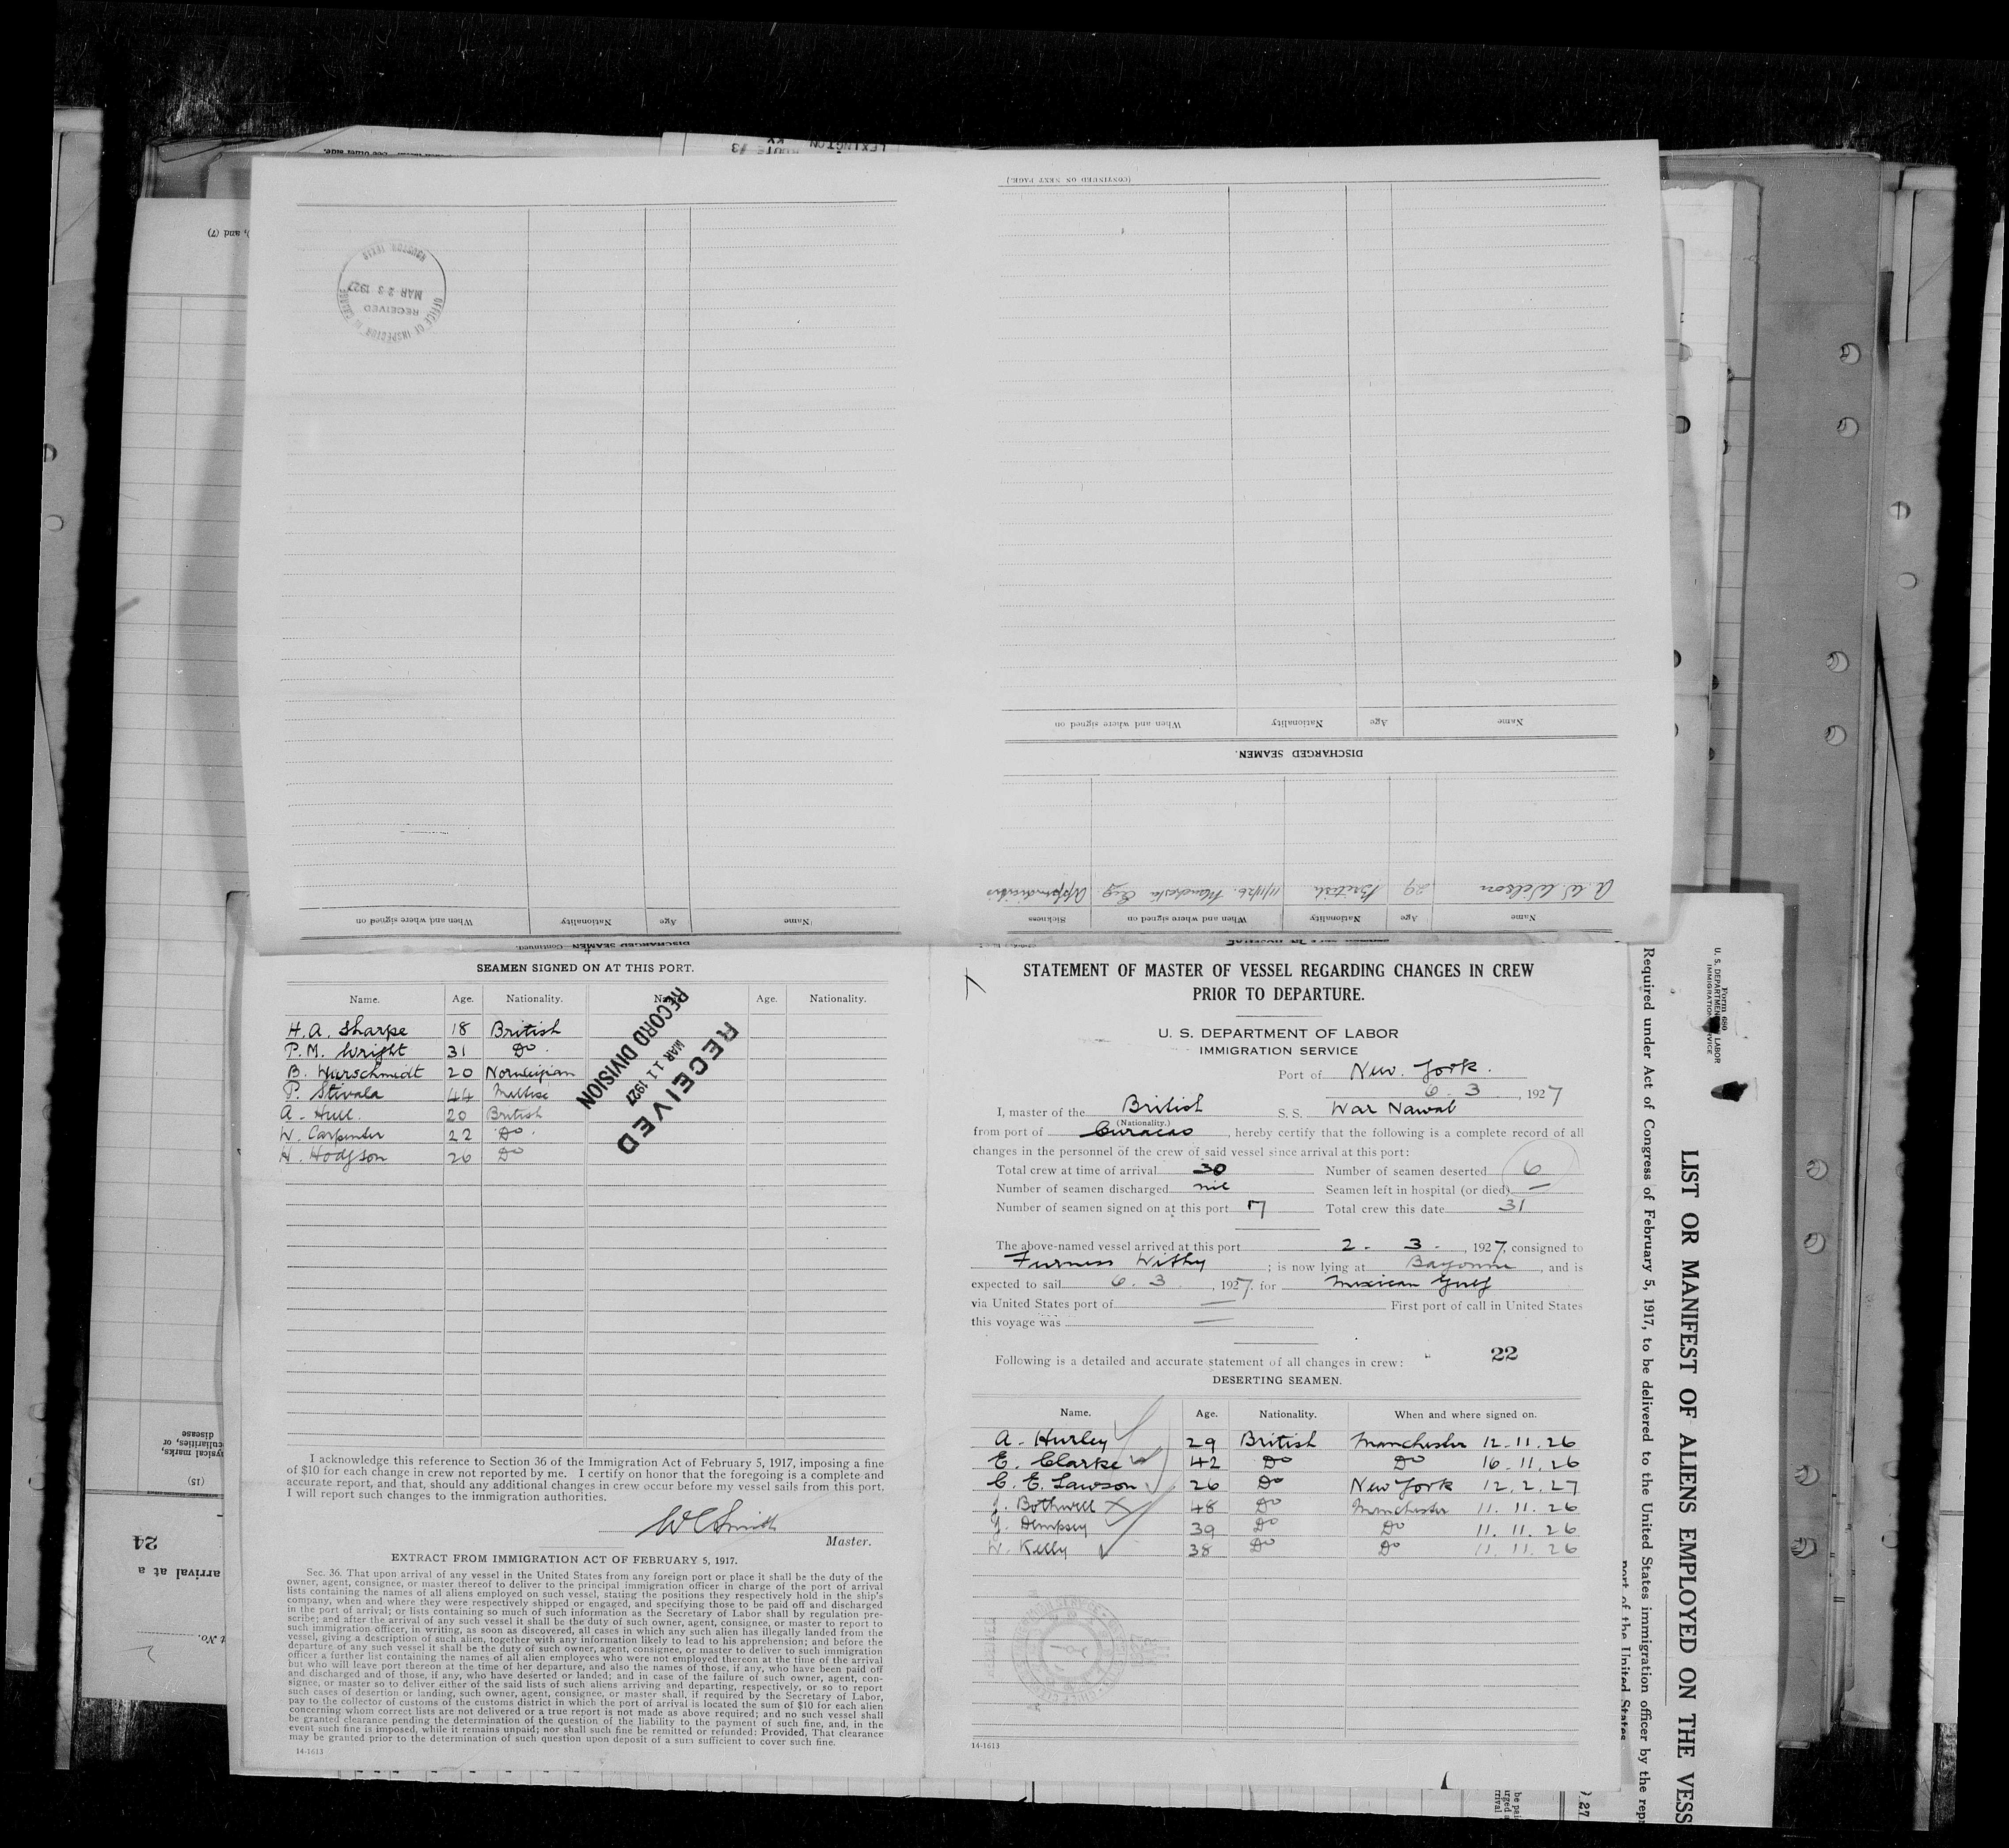 SEAMEN SIGNED ON AT THIS PORT.
Name. Age. Nationality. Name. Age. Nationality.
H.A. Sharpe 18 British
P.M. Wright 31 Do.
B. Hurschmedt 20 Norweigian
P. Stivala 44 Maltese
A. Hull. 20 British
W. Carpenter 22 Do.
H. Hodgson 26 Do
RECEIVED
MAR 11 1927
RECORD DIVISION
I acknowledge this reference to Section 36 of the Immigration Act of February 5, 1917, imposing a fine
of $10 for each change in crew not reported by me. I certify on honor that the foregoing is a complete and
accurate report, and that, should any additional changes in crew occur before my vessel sails from this port,
I will report such changes to the immigration authorities.
W C Smith
Master.
EXTRACT FROM IMMIGRATION ACT OF FEBRUARY 5, 1917.
Sec. 36. That upon arrival of any vessel in the United States from any foreign port or place it shall be the duty of the
owner, agent, consignee, or master thereof to deliver to the principal immigration officer in charge of the port of arrival
lists containing the names of all aliens employed on such vessel, stating the positions they respectively hold in the ship's
company, when and where they were respectively shipped or engaged, and specifying those to be paid off and discharged
in the port of arrival; or lists containing so much of such information as the Secretary of Labor shall by regulation pre-
scribe; and after the arrival of any such vessel it shall be the duty of such owner, agent, consignee, or master to report to
such immigration officer, in writing, as soon as discovered, all cases in which any such alien has illegally landed from the
vessel, giving a description of such alien, together with any information likely to lead to his apprehension; and before the
departure of any such vessel it shall be the duty of such owner, agent, consignee, or master to deliver to such immigration
officer a further list containing the names of all alien employees who were not employed thereon at the time of the arrival
but who will leave port thereon at the time of her departure, and also the names of those, if any, who have been paid off
and discharged and of those, if any, who have deserted or landed; and in case of the failure of such owner, agent, con-
signee, or master so to deliver either of the said lists of such aliens arriving and departing, respectively, or so to report
such cases of desertion or landing, such owner, agent, consignee, or master shall, if required by the Secretary of Labor,
pay to the collector of customs of the customs district in which the port of arrival is located the sum of $10 for each alien
concerning whom correct lists are not delivered or a true report is not made as above required; and no such vessel shall
be granted clearance pending the determination of the question of the liability to the payment of such fine, and, in the
event such fine is imposed, while it remains unpaid; nor shall such fine be remitted or refunded: Provided, That clearance
may be granted prior to the determination of such question upon deposit of a sum sufficient to cover such fine.
14-1613
STATEMENT OF MASTER OF VESSEL REGARDING CHANGES IN CREW
PRIOR TO DEPARTURE.
U. S. DEPARTMENT OF LABOR
IMMIGRATION SERVICE
Port of New York.
6. 3, 1927
I, master of the British S. S. War Nawab
(Nationality.)
from port of Curacao, hereby certify that the following is a complete record of all
changes in the personnel of the crew of said vessel since arrival at this port:
Total crew at time of arrival 30 Number of seamen deserted 6
Number of seamen discharged nil Seamen left in hospital (or died) —
Number of seamen signed on at this port 7 Total crew this date 31
The above-named vessel arrived at this port 2. 3., 1927, consigned to
Furness Withy; is now lying at Bayonne, and is
expected to sail 6. 3, 1927, for Mexican Gulf
via United States port of — First port of call in United States
this voyage was —
22
Following is a detailed and accurate statement of all changes in crew:
DESERTING SEAMEN.
Name. Age. Nationality. When and where signed on.
A. Hurley 29 British Manchester 12.11.26
E. Clarke 42 Do Do 16.11.26
C. E. Lawson 26 Do New York 12.2.27
J. Bothwell 48 Do Manchester 11.11.26
J. Dempsey 39 Do Do 11.11.26
W. Kelly 38 Do Do 11.11.26
14-1613
DISCHARGED SEAMEN—Continued.
Name Age Nationality When and where signed on
OFFICE OF INSPECTOR IN CHARGE
RECEIVED
MAR 23 1927
HOUSTON TEXAS
Name Age Nationality When and where signed on Sickness
A. W. Wilson 29 British 11/11/26. Manchester Eng Appendicitis
DISCHARGED SEAMEN.
Name Age Nationality When and where signed on
(CONTINUED ON NEXT PAGE.)
Form 680
U. S. DEPARTMENT OF LABOR
IMMIGRATION SERVICE
LIST OR MANIFEST OF ALIENS EMPLOYED ON THE VESS
Required under Act of Congress of February 5, 1917, to be delivered to the United States immigration officer by the rep
port of the United States
LEXINGTON KY
ROUTE #3
), and (7)
(15)
disease
24
arrival at a